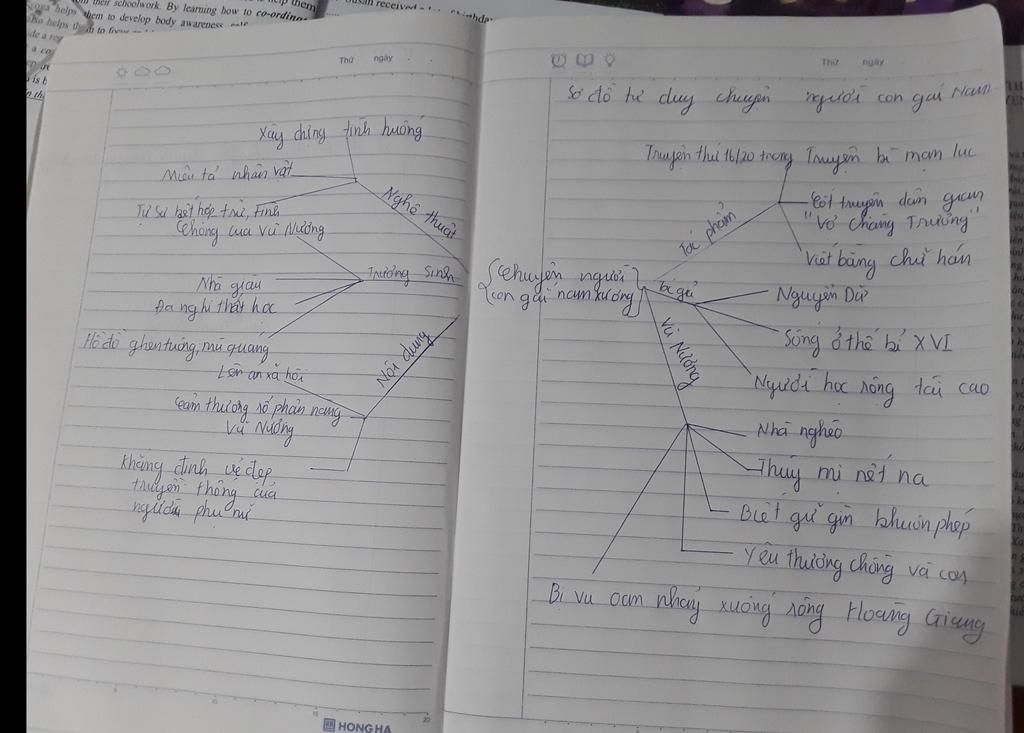 helps them
their schoolwork. By learning how to co-ordin
yoga helps them to develop body awareness
also helps
received a
Thứ ngày
Xây chứng tình huống
Miêu tả nhân vật
Tự sự kết hợp trữ, tình
Nghệ thuật
Chồng của Vũ Nương
Trương Sinh
Nhà giàu
Đa nghi thất học
Hồ đồ ghen tuông, mù quang
Nội dung
Lên an xã hội
Cảm thương số phận nang
Vũ Nương
Khẳng định vẻ đẹp
truyền thống của
người phụ nữ
HONG HA
Thứ ngày
Sơ đồ tư duy chuyện người con gái Nam
Truyện thứ 16/20 trong Truyện kì mạn lục
Tác phẩm
Cốt truyện dân gian
"Vợ Chàng Trương"
Viết bằng chữ hán
Chuyện người
con gái nam xương
Tác giả
Nguyễn Dữ
Sống ở thế kỉ XVI
Người học rông tài cao
Vũ Nương
Nhà nghèo
Thuỳ mị nết na
Biết giữ gìn khuôn phép
Yêu thương chồng và con
Bị vu oan nhảy xuống sông Hoàng Giang